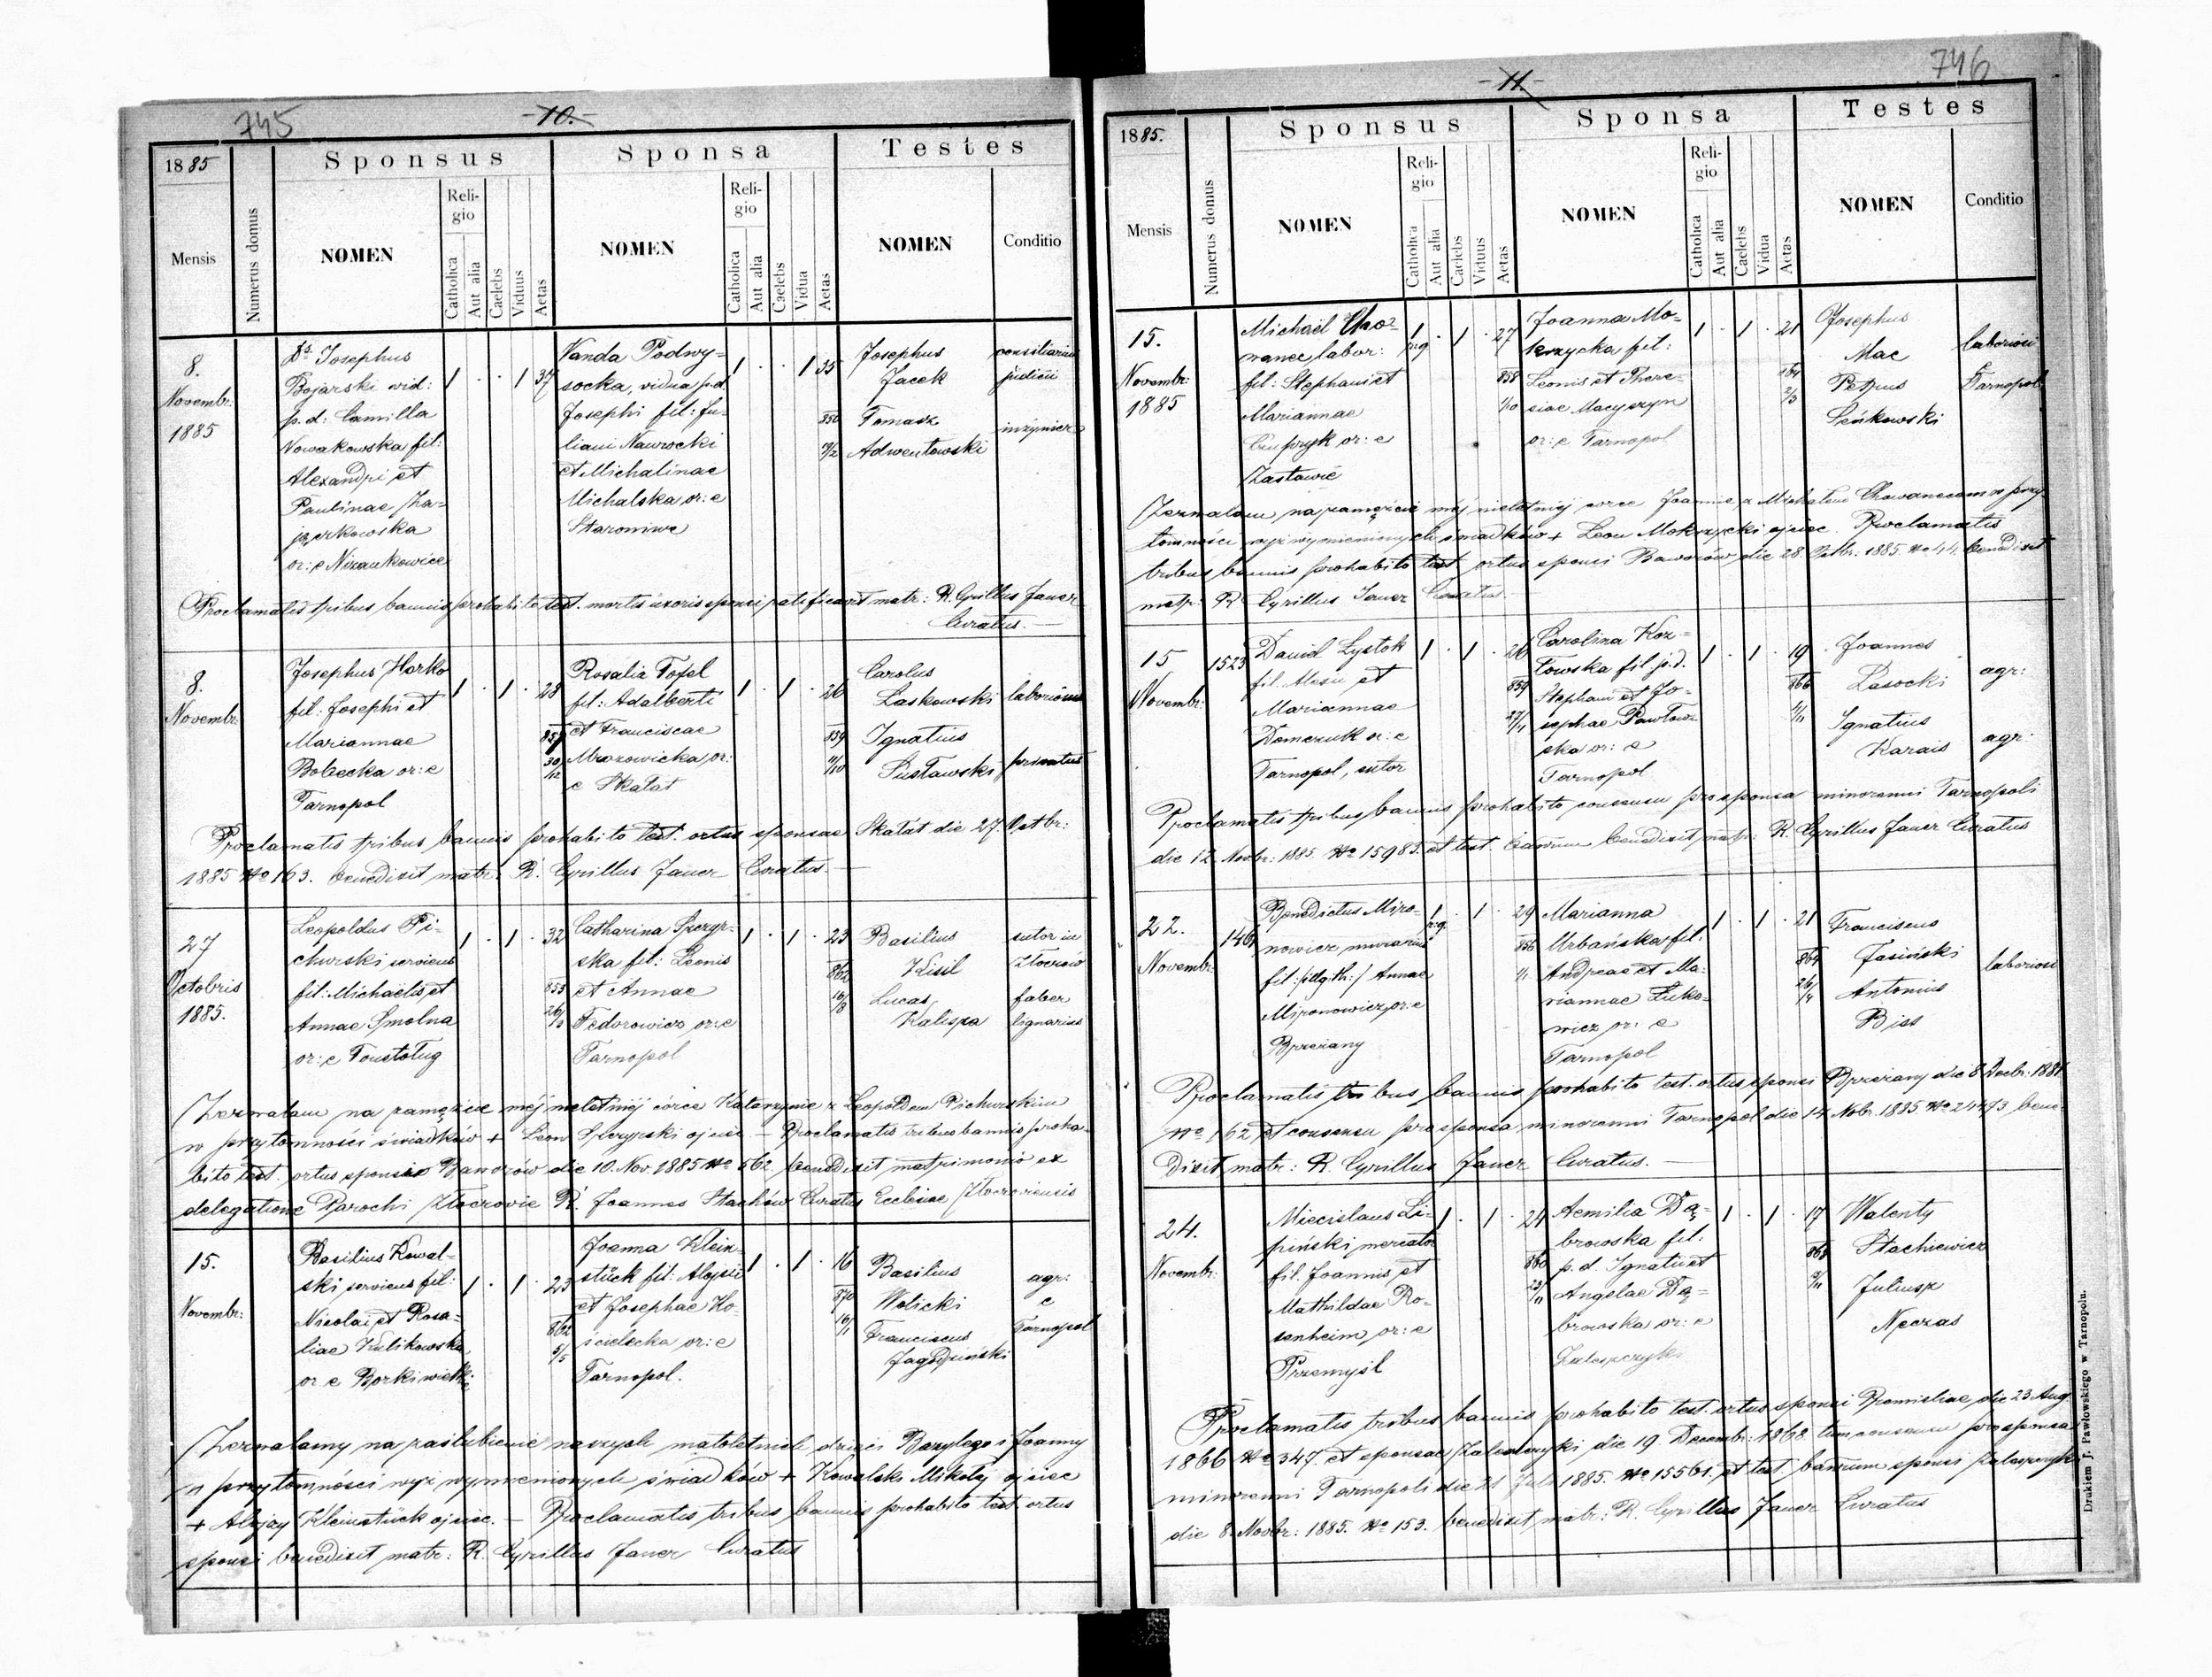 745
-10.-
1885
Sponsus
Sponsa
Testes
Mensis
Numerus domus
NOMEN
Religio
Catholica
Aut alia
Caelebs
Viduus
Aetas
NOMEN
Religio
Catholica
Aut alia
Caelebs
Vidua
Aetas
NOMEN
Conditio
8.
Novembr.
1885
Ds. Josephus
Bojarski vid:
p.d: Camilla
Nowakowska fil:
Alexandri et
Paulinae Za-
jączkowska
or: e Nizankowice
1 . . 1 37
Vanda Podwy-
socka, vidua p.d.
Josephi fil: Ju-
liani Nawrocki
et Michalinae
Michalska or: e
Staromiwe
1 . . 1 35
850
19/2
Josephus
Jacek
Tomasz
Adwentowski
consiliarius
judicii
inżynier
Proclamatis tribus bannis prohabito test. mortis uxoris sponsi ratificavit matr: R. Cyrillus Jauer
Curatus.
8.
Novembr:
Josephus Horko
fil: Josephi et
Mariannae
Bobecka or: e
Tarnopol
1 . 1 . 28
857
30/12
Rosalia Tofel
fil: Adalberti
et Franciscae
Mrozowicka, or:
e Skałat
1 . 1 . 26
859
4/10
Carolus
Laskowski
Ignatius
Pustawski
laboriosus
privatus
Proclamatis tribus bannis prohabito test. ortus sponsae Skałat die 27. Octbr:
1885 No 163. benedixit matr: R. Cyrillus Jauer Curatus.
27
Octobris
1885.
Leopoldus Pi-
churski serviens
fil: Michaelis et
Annae Smolna
or: e Toustoług
1 . 1 . 32
853
26/3
Catharina Spezyr-
ska fil: Leonis
et Annae
Fedorowicz or: e
Tarnopol
1 . 1 . 23
862
16/8
Basilius
Kisil
Lucas
Kalispa
sutor in
Złoczow
faber
lignarius
Zezwalam na zamęzcie mej nieletniej córce Katarzynie z Leopoldem Pichurskim
w przytomności świadków + Leon Spezyrski ojciec. — Proclamatis tribus bannis proha-
bito test. ortus sponsae Baworów die 10. Nov. 1885 No 562. benedixit matrimonio ex
delegatione Parochi Złoczovie R. Joannes Stachów Curatus Ecclesiae Złoczoviensis
15.
Novembr:
Basilius Kowal-
ski serviens fil:
Nicolai et Rosa-
liae Kulikowska
or: e Borki wielkie
1 . 1 . 23
862
5/5
Joanna Klein-
stück fil: Alojsii
et Josephae Ko-
ścielecka or: e
Tarnopol.
1 . 1 . 16
870
16/1
Basilius
Wolicki
Franciscus
Jagodziński
agr:
e
Tarnopol
Zezwalamy na zaślubienie naszych małoletnich dzieci Bazylego i Joanny
w przytomności wyż wymienionych świadków + Kowalski Mikołaj ojciec
+ Alojzy Kleinstück ojciec. — Proclamatis tribus bannis prohabito test. ortus
sponsi benedixit matr: R. Cyrillus Jauer Curatus
746
-11-
1885.
Sponsus
Sponsa
Testes
Mensis
Numerus domus
NOMEN
Religio
Catholica
Aut alia
Caelebs
Viduus
Aetas
NOMEN
Religio
Catholica
Aut alia
Caelebs
Vidua
Aetas
NOMEN
Conditio
15.
Novembr:
1885
Michaël Cho-
wanec labor:
fil: Stephani et
Mariannae
Czupryk or: e
Zastawie
1 . 1 . 27
r.g.
858
1/10
Joanna Mo-
krzycka fil:
Leonis et There-
siae Macyszyn
or: e Tarnopol
1 . 1 . 21
864
2/3
Josephus
Mac
Petrus
Leńkowski
laboriosi
Tarnopol
Zezwalam na zamęzcie mej nieletniej corce Joannie z Michałem Chowanecem w przy-
tomności wyż wymienionych świadków + Leon Mokrzycki ojciec. Proclamatis
tribus bannis prohabito test. ortus sponsi Baworów die 28. Octbr: 1885 No 44. benedixit
matr: R. Cyrillus Jauer Curatus.
15
Novembr:
1523
Daniel Lystok
fil. Alexii et
Mariannae
Domczuk or: e
Tarnopol, sutor
1 . 1 . 26
859
27/11
Carolina Koz-
łowska fil. p.d.
Stephani et Jo-
sephae Pawłow-
ska or: e
Tarnopol
1 . 1 . 19
866
4/11
Joannes
Lasocki
Ignatius
Karais
agr:
agr:
Proclamatis tribus bannis prohabito consensu pro sponsa minorenni Tarnopoli
die 12. Novbr: 1885. No 15985. et test. bannum benedixit matr: R. Cyrillus Jauer Curatus
22.
Novembr:
146
Benedictus Miro-
nowicz murarius
fil: /illg. th:/ Annae
Mironowicz or: e
Brzeżany
1 . 1 . 29
r.g.
856
1/1
Marianna
Urbańska fil:
Andreae et Ma-
riannae Łuko-
wicz or: e
Tarnopol
1 . 1 . 21
864
26/4
Franciscus
Jasiński
Antonius
Biss
laboriosi
Proclamatis tribus bannis prohabito test. ortus sponsi Brzeżany die 8. Decbr. 1881
No 162 et consensu pro sponsa minorenni Tarnopol die 14. Nobr. 1885 No 24473 bene-
dixit matr: R. Cyrillus Jauer Curatus.
24.
Novembr:
Miecislaus Li-
piński mercator
fil. Joannis et
Mathildae Ro-
senheim, or: e
Przemyśl
1 . 1 . 24
860
23/11
Aemilia Dą-
browska fil:
p.d. Ignatii et
Angelae Dą-
browska or: e
Zaleszczyki
1 . 1 . 17
868
3/11
Walenty
Stachiewicz
Juliusz
Neczas
Proclamatis tribus bannis prohabito test. ortus sponsi Premisliae die 23. Aug.
1866 No 347. et sponsae Zaleszczyki die 19. Decembr: 1868. tum consensu pro sponsa
minorenni Tarnopoli die 21 Julii 1885. No 15561. et test. bannum sponsi Zaleszczyki
die 8. Novbr: 1885. No 153. benedixit matr: R. Cyrillus Jauer Curatus
Drukiem J. Pawłowskiego w Tarnopolu.